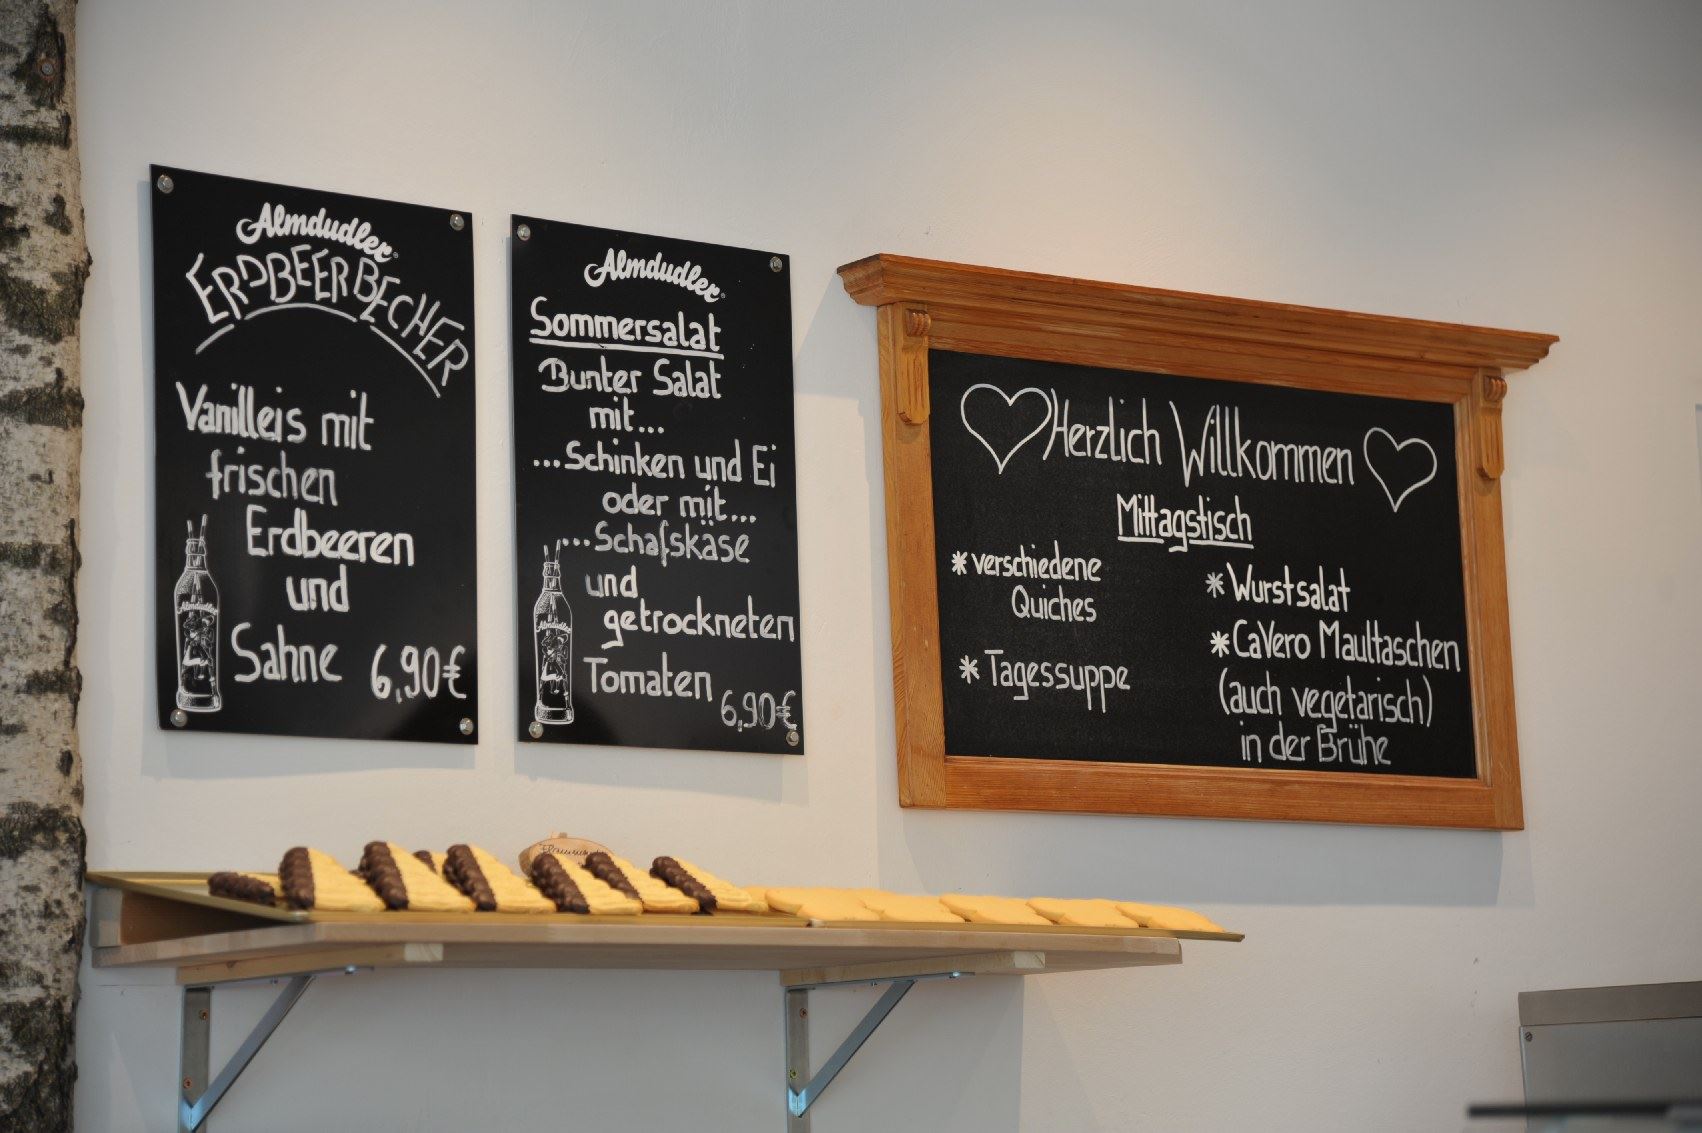 Almdudler
ERDBEERBECHER
Vanilleis mit
frischen
Erdbeeren
und
Sahne 6,90€
Almdudler
Almdudler
Sommersalat
Bunter Salat
mit...
...Schinken und Ei
oder mit...
...Schafskäse
und
getrockneten
Tomaten 6,90€
Almdudler
Herzlich Willkommen
Mittagstisch
* verschiedene
Quiches
* Tagessuppe
* Wurstsalat
* CaVero Maultaschen
(auch vegetarisch)
in der Brühe